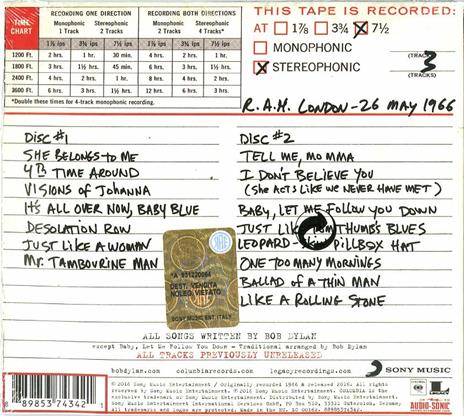 TIME CHART
RECORDING ONE DIRECTION
RECORDING BOTH DIRECTIONS
Monophonic 1 Track
Stereophonic 2 Tracks
Monophonic 2 Tracks
Stereophonic 4 Tracks*
1⅞ ips 3¾ ips 7½ ips 1⅞ ips 3¾ ips 7½ ips
1200 Ft. 2 hrs. 1 hr. 30 min. 4 hrs. 2 hrs. 1 hr.
1800 Ft. 3 hrs. 1½ hrs. 45 min. 6 hrs. 3 hrs. 1½ hrs.
2400 Ft. 4 hrs. 2 hrs. 1 hr. 8 hrs. 4 hrs. 2 hrs.
3600 Ft. 6 hrs. 3 hrs. 1½ hrs. 12 hrs. 6 hrs. 3 hrs.
*Double these times for 4-track monophonic recording.
THIS TAPE IS RECORDED:
AT 1⅞ 3¾ 7½
MONOPHONIC
STEREOPHONIC
3
(TRACKS)
R.A.H. LONDON - 26 MAY 1966
DISC #1
SHE BELONGS TO ME
4TH TIME AROUND
VISIONS OF JOHANNA
IT'S ALL OVER NOW, BABY BLUE
DESOLATION ROW
JUST LIKE A WOMAN
MR. TAMBOURINE MAN
DISC #2
TELL ME, MOMMA
I DON'T BELIEVE YOU
(SHE ACTS LIKE WE NEVER HAVE MET)
BABY, LET ME FOLLOW YOU DOWN
JUST LIKE TOM THUMB'S BLUES
LEOPARD-SKIN PILLBOX HAT
ONE TOO MANY MORNINGS
BALLAD OF A THIN MAN
LIKE A ROLLING STONE
SIAE
DEST. VENDITA
NOLEG. VIETATO
SONY MUSIC ENT. ITALY
ALL SONGS WRITTEN BY BOB DYLAN
except Baby, Let Me Follow You Down - Traditional arranged by Bob Dylan
ALL TRACKS PREVIOUSLY UNRELEASED
bobdylan.com columbiarecords.com legacyrecordings.com SONY MUSIC
8 89853 74342 1
AUDIO-SONIC